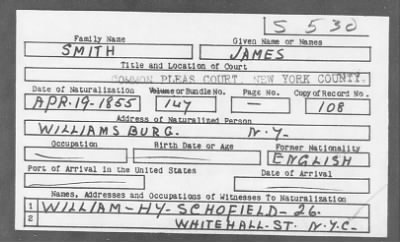 S 530
Family Name Given Name or Names
SMITH JAMES
Title and Location of Court
COMMON PLEAS COURT, NEW YORK COUNTY.
Date of Naturalization Volume or Bundle No. Page No. Copy of Record No.
APR-19-1855 147 — 108
Address of Naturalized Person
WILLIAMSBURG. N-Y-
Occupation Birth Date or Age Former Nationality
— — ENGLISH
Port of Arrival in the United States Date of Arrival
— —
Names, Addresses and Occupations of Witnesses To Naturalization
1 WILLIAM-HY-SCHOFIELD-26.
2 WHITEHALL-ST. N-Y-C-